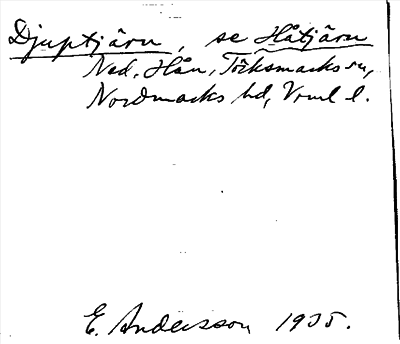 Djuptjärn, se Håtjärn
Ned. Hån, Töcksmarks sn,
Nordmarks hd, Vrml l.
E. Andersson 1935.